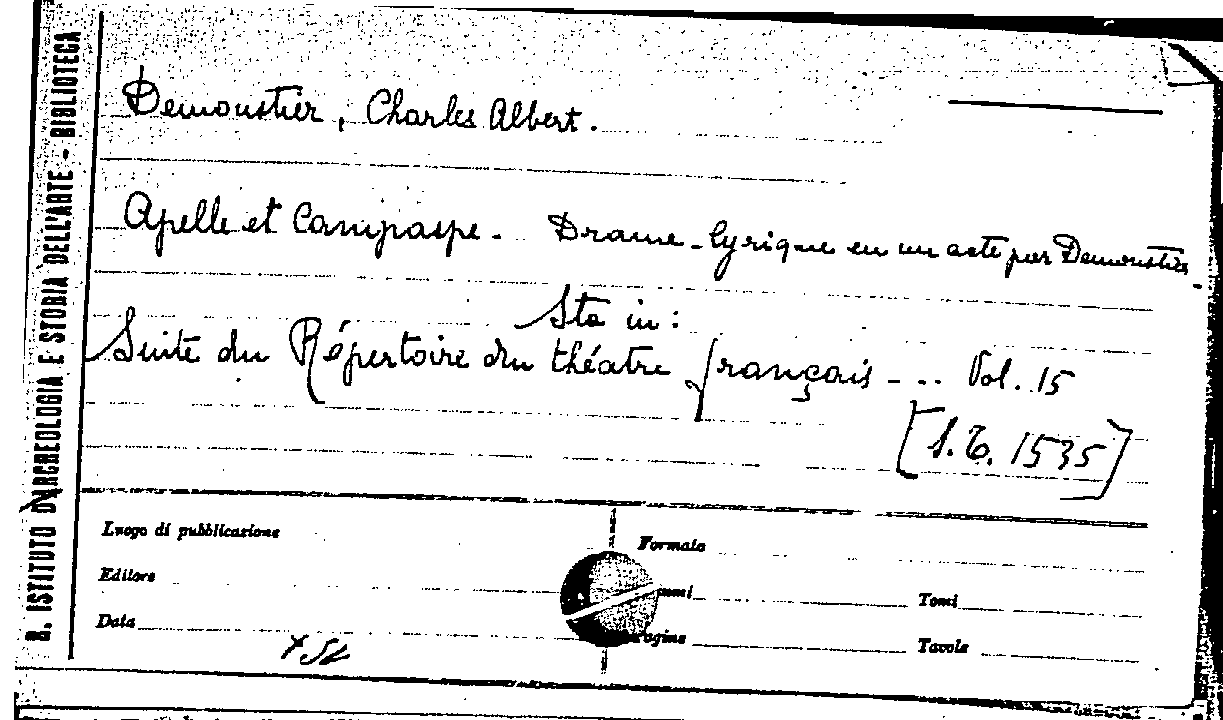 Demoustier, Charles Albert.
Apelle et Campaspe. Drame-lyrique en un acte par Demoustier.
Sta in:
Suite du Répertoire du théatre français - .. Vol. 15
[S.T. 1535]
Luogo di pubblicazione
Formato
Editore
Tomi
Data
Pagine
Tavole
ISTITUTO D'ARCHEOLOGIA E STORIA DELL'ARTE - BIBLIOTECA